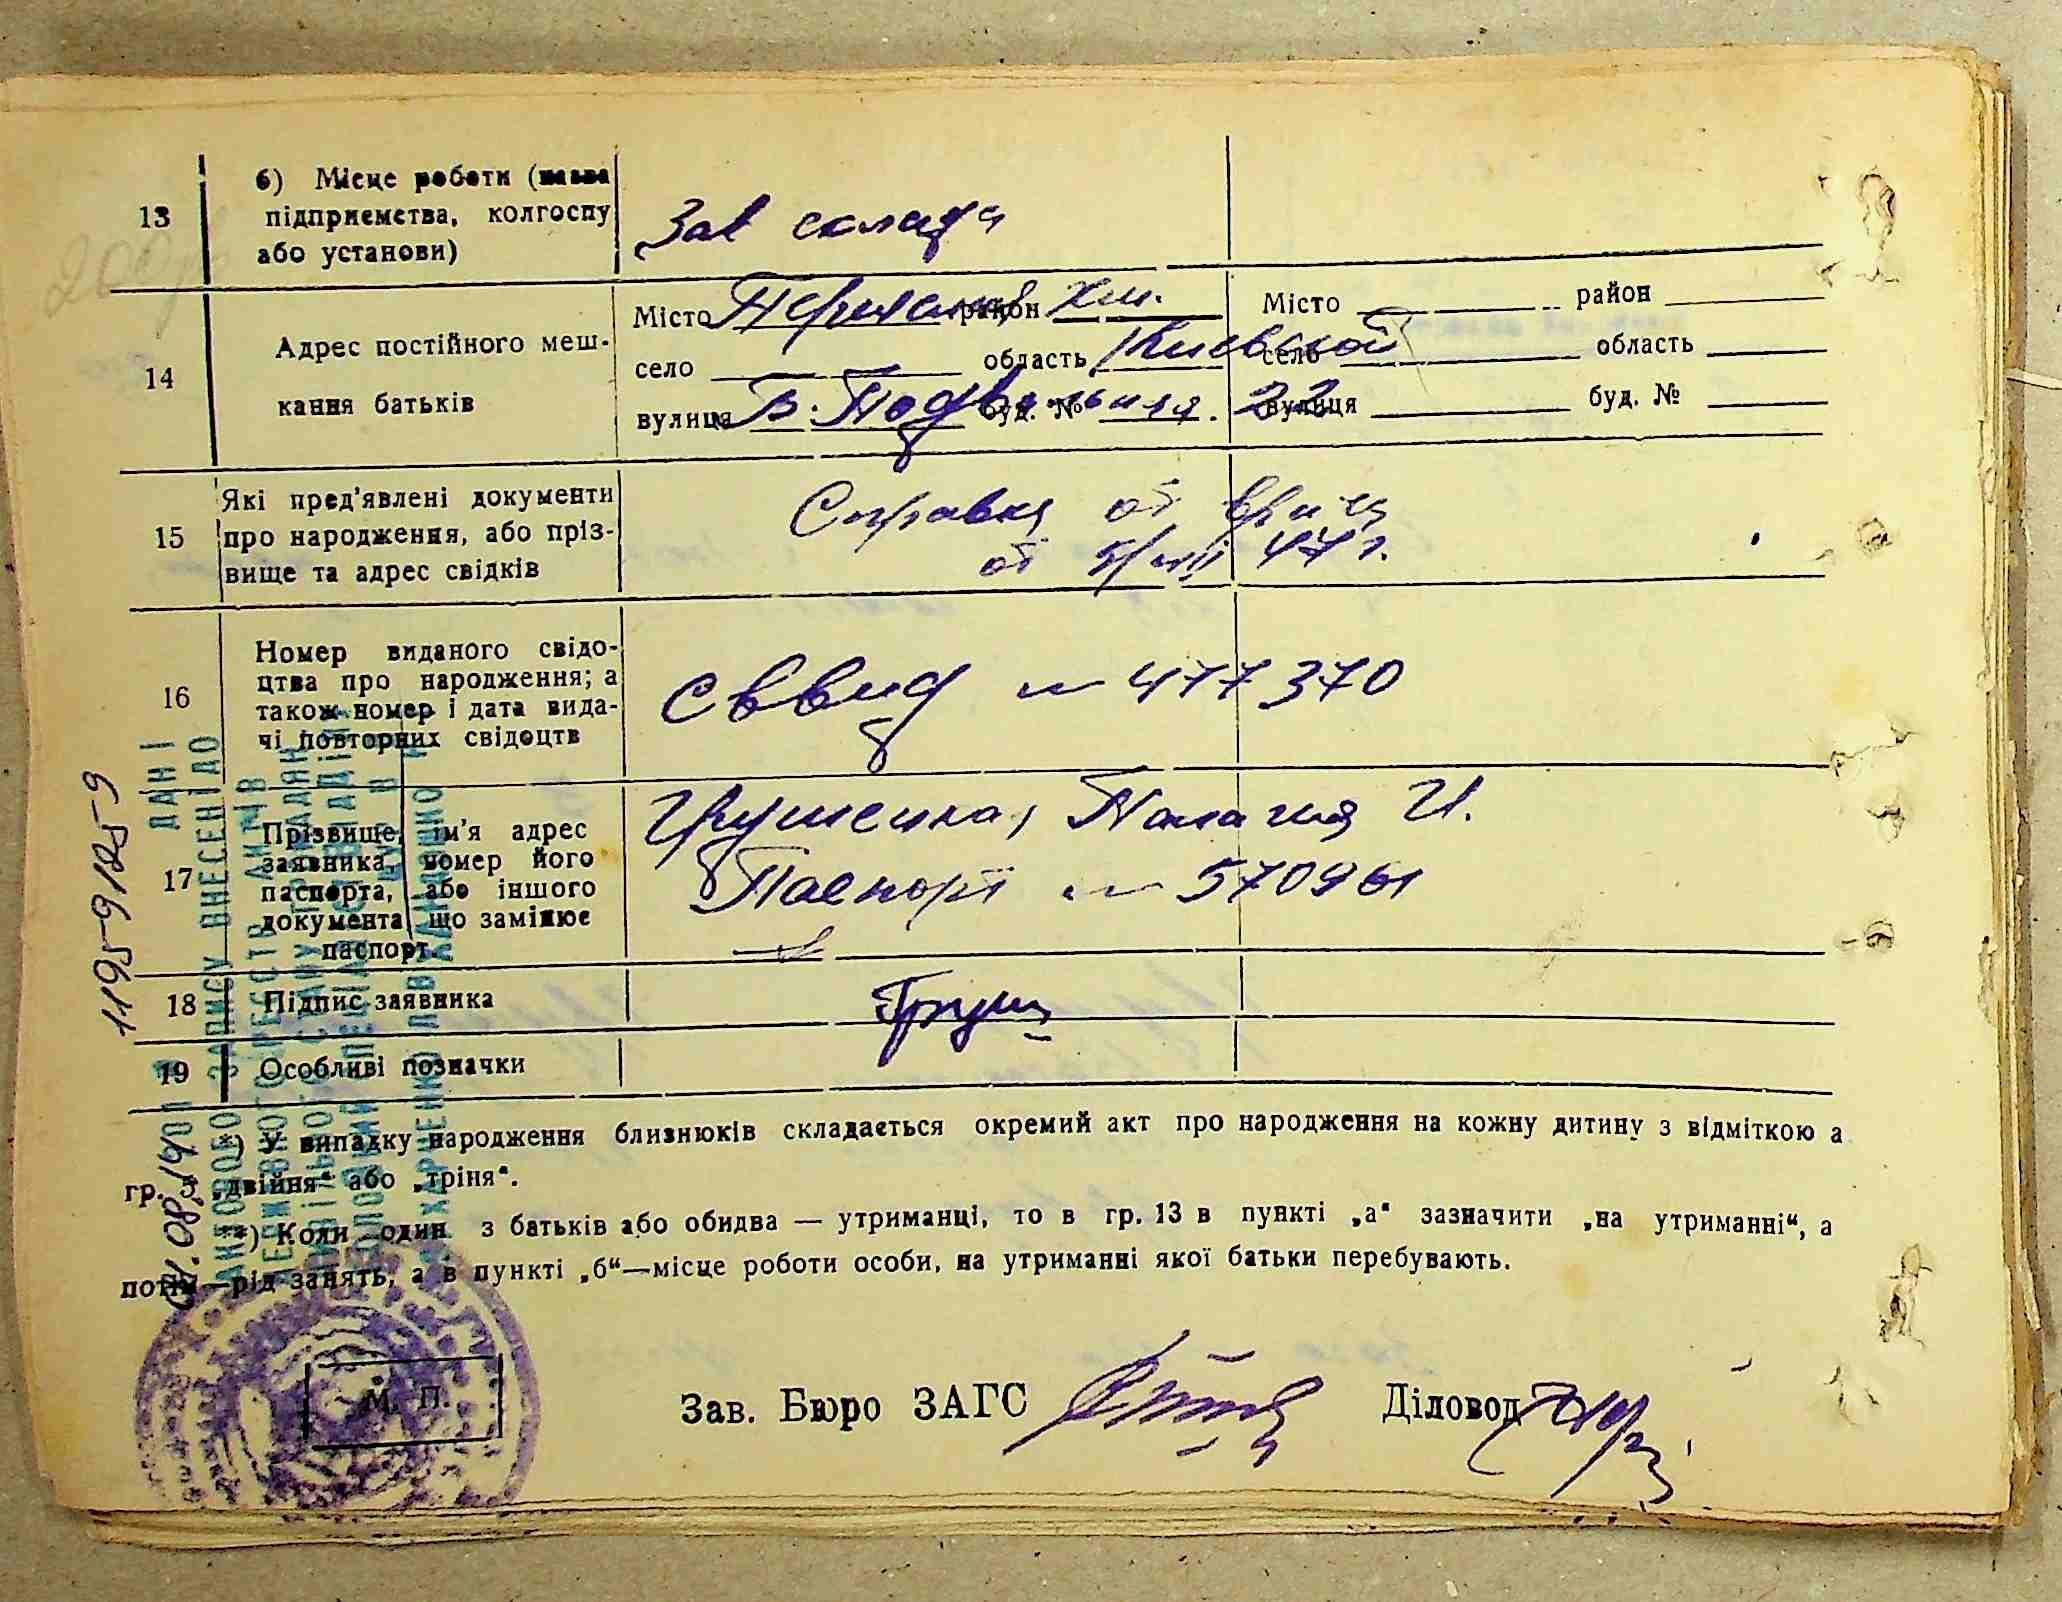 13
б) Місце роботи (назва
підприємства, колгоспу
або установи)
Зав склада
14
Адрес постійного меш-
кання батьків
Місто район Хм. Місто район
село область Киевской село область
вулиця В. Подвальная. 22 буд. № вулиця буд. №
15
Які пред'явлені документи
про народження, або пріз-
вище та адрес свідків
Справка от врача
от 5/VIII 47 г.
16
Номер виданого свідо-
цтва про народження; а
також номер і дата вида-
чі повторних свідоцтв
№ 477370
17
Прізвище, ім'я адрес
заявника, номер його
паспорта, або іншого
документа що замінює
паспорт.
Палагия И.
Паспорт № 570961
18 Підпис заявника
Грущ
19 Особливі позначки
*) У випадку народження близнюків складається окремий акт про народження на кожну дитину з відміткою а
гр. 5 „двійня“ або „тріня“.
**) Коли один з батьків або обидва — утриманці, то в гр. 13 в пункті „а“ зазначити „на утриманні“, а
потім—рід занять, а в пункті „б“—місце роботи особи, на утриманні якої батьки перебувають.
М. П.
Зав. Бюро ЗАГС Діловод
ДАНІ
ВНЕСЕНІ ДО